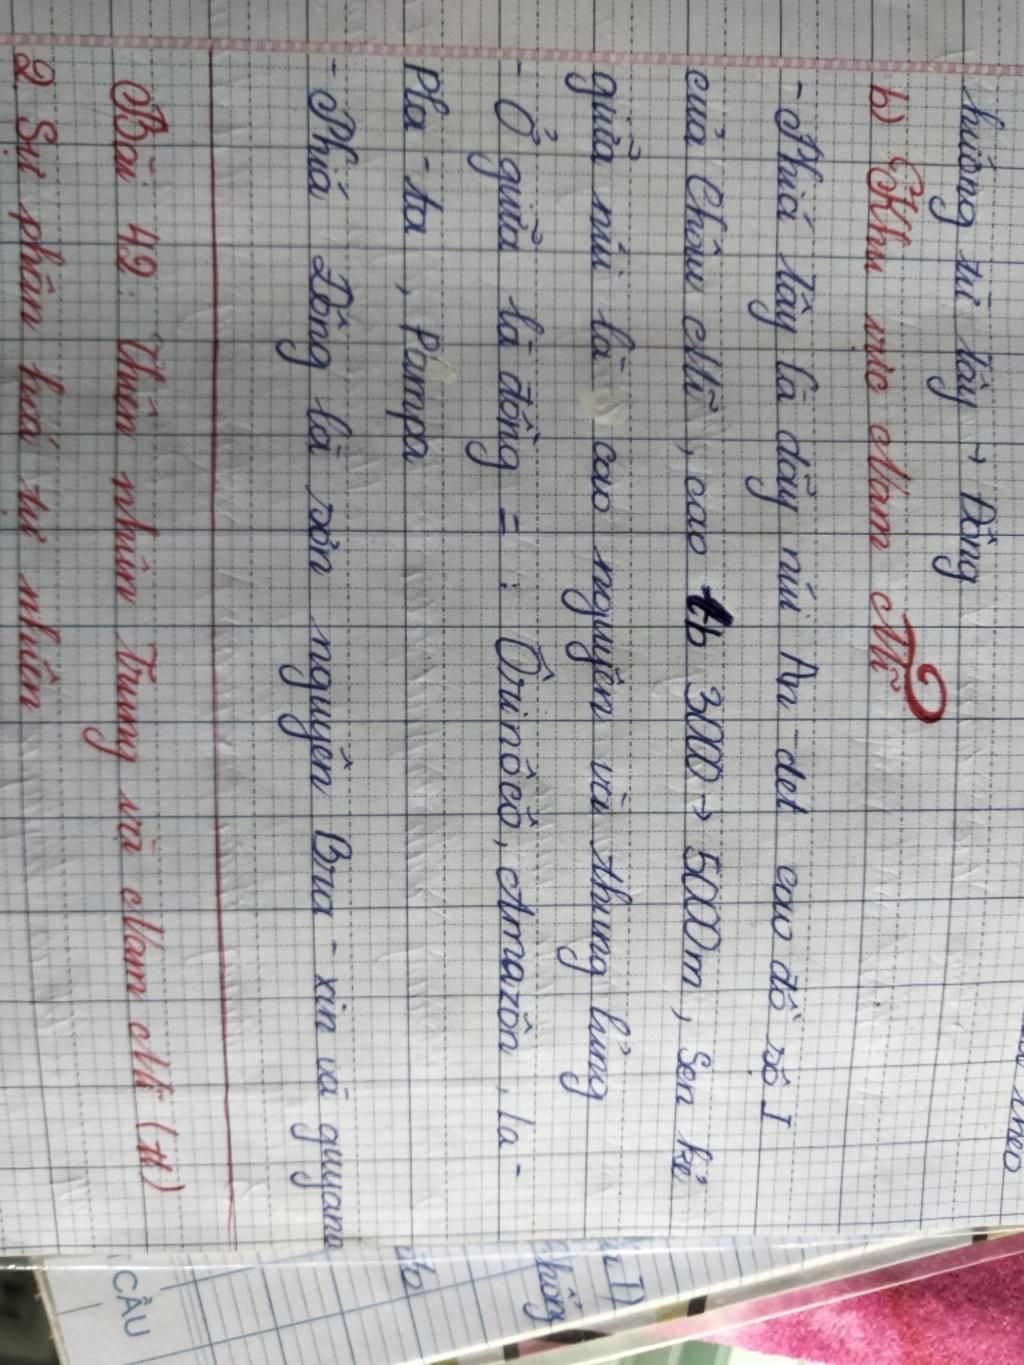 hướng từ tây → Đông
b) Khu vực Nam Mĩ
- Phía tây là dãy núi An-det cao đồ sộ I
của Châu Mĩ, cao tb 3000 → 5000m, Sen kẽ
giữa núi là cao nguyên và thung lũng
- Ở giữa là đồng = : Ôrinôcô, Amazôn, la-
Pla-ta, Pampa
- Phía Đông là sơn nguyên Bra-xin và guyana
Bài 42: Thiên nhiên Trung và Nam Mĩ (tt)
2. Sự phân hoá tự nhiên
CẦU